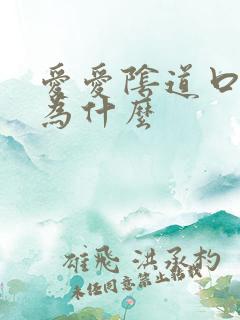 愛愛陰道口
為什麼
雄飛 洪承杓
未經同意禁止轉載